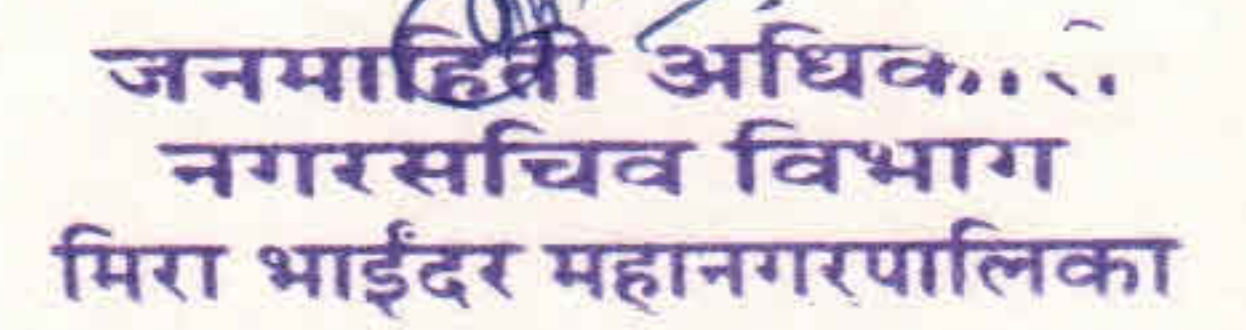 जनमाहिती अधिकारी
नगरसचिव विभाग
मिरा भाईंदर महानगरपालिका